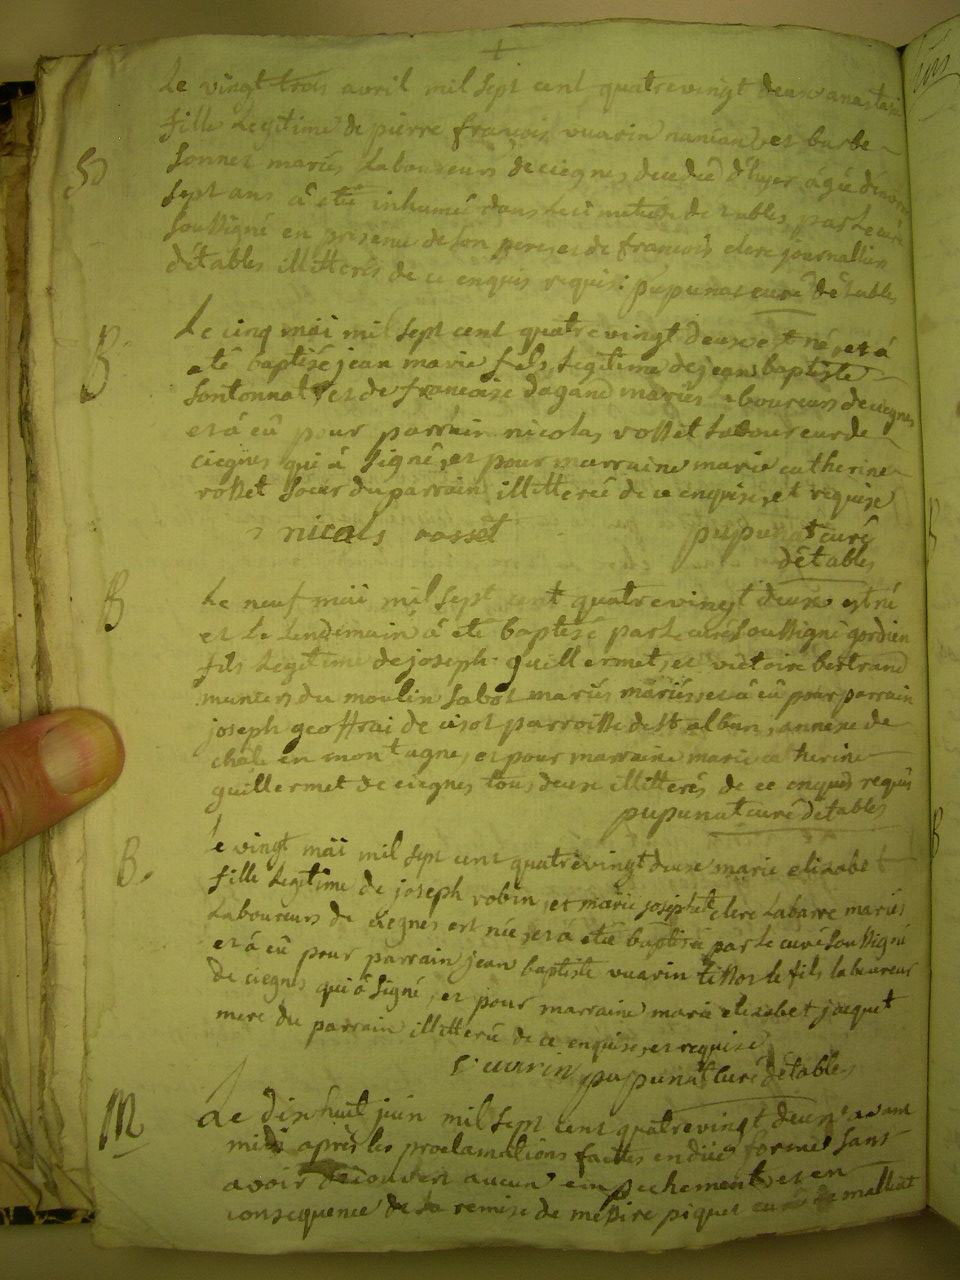 +
Le vingt trois avril mil sept cent quatrevingt deux anastasie
fille Legitime de pierre francois vuarin naniau et barbe
S sonnet mariés Laboureurs de ciegnes decedeé d'hyer ageé d'environ
sept ans â etée inhumée dans Le cimetiere de tables par Le curé
soussigné en presence de son pere et de francois clerc journallier
détables illitterés de ce enquis requis: pupunat curé de tables
B Le cinq mäi mil sept cent quatrevingt deux est né, et á
eté baptisé jean marie fils Legitime de jean baptiste
sontonnat et de francoise dagand mariés laboureurs de ciegnes
et á eû pour parrain nicolas rosset Laboureur de
ciegnes qui â signé, et pour marraine marie catherine
rosset soeur du parrain illitterée de ce enquise, et requise
nicals rosset pupunat curé
détables
B Le neuf mäi mil sept cent quatrevingt deux est né
et Le Lendemain â eté baptisé par Le curé soussigné gordien
fils Legitime de joseph guillermet, et victoire bertrand
muniers du moulin sabot mariés mariés, et â eû pour parrain
joseph geoffrai de cisot parroisse de st alban, annexe de
chale en montagne, et pour marraine marie catherine
guillermet de ciegnes tous deux illitterés de ce enquis requis
pupunat curé détables
B. Le vingt mäi mil sept cent quatrevingt deux marie elizabet
fille Legitime de joseph robin et marie josephte clerc Labarre mariés
Laboureurs de ciegnes est née, et â etée baptisée par Le curé soussigné
et â eû pour parrain jean baptiste vuarin tissot le fils laboureur
de ciegnes qui â signé, et pour marraine marie elizabet jacquet
mere du parrain illitterée de ce enquise, et requise
vuarin pupunat curé détables
M Le dixhuit juin mil sept cent quatrevingt deux avant
midi après les proclamations faites en düe forme sans
avoir decouvert aucun empechement et en
consequence de La remise de messire piquet curé de malliat